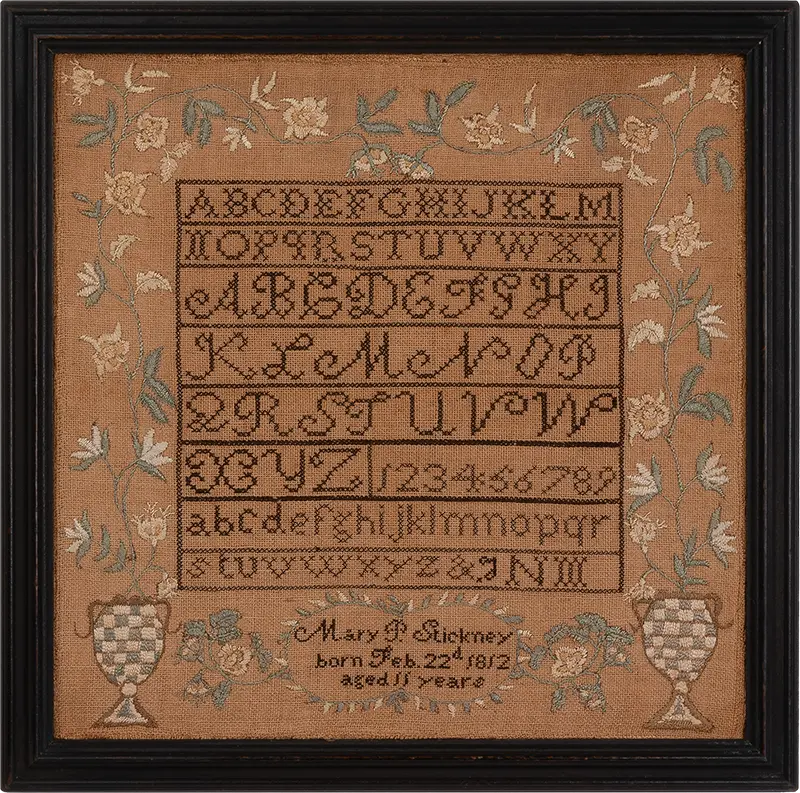 ABCDEFGHIJKLM
NOPQRSTUVWXY
ABCDEFGHI
KLMNOP
QRSTUVW
XYZ 123456789
abcdefghijklmnopqr
stuvwxyz & J N M
Mary P Stickney
born Feb. 22d 1812
aged 11 years